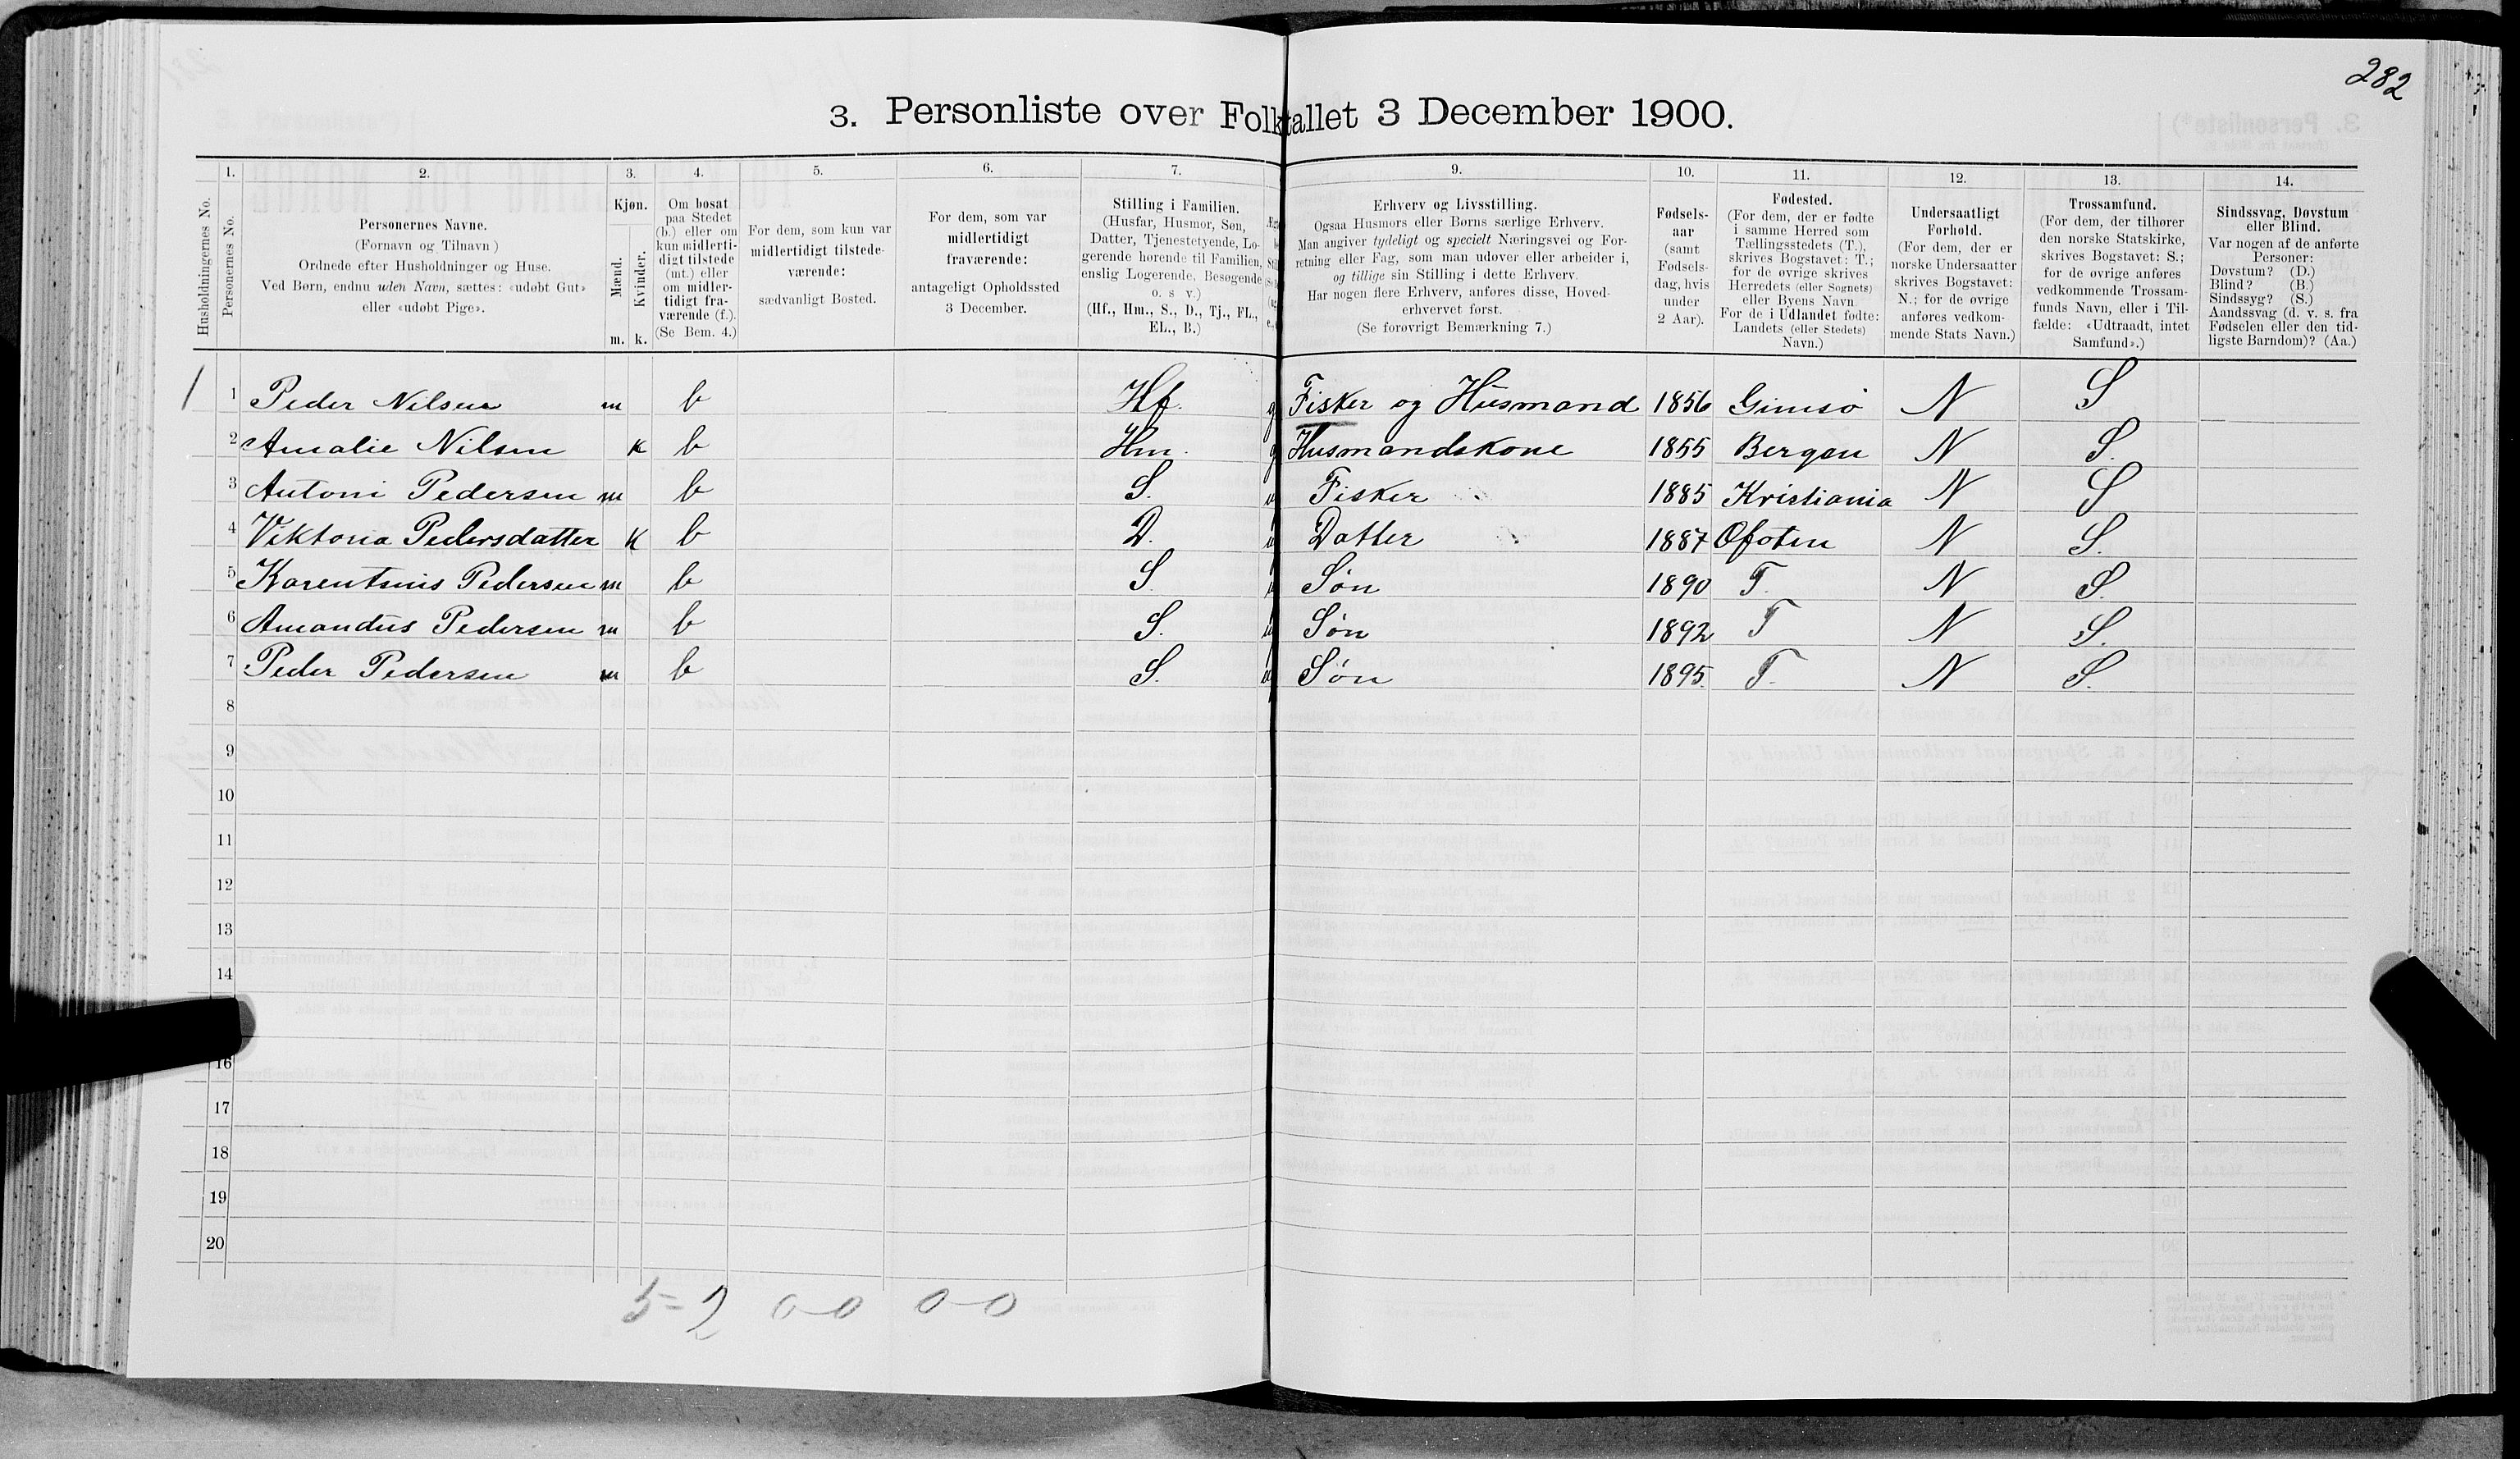 282
3. Personliste over Folketallet 3 December 1900.
1. 2. 3. 4. 5. 6. 7. 9. 10. 11. 12. 13. 14.
Husholdningernes No.
Personernes No.
Personernes Navne.
(Fornavn og Tilnavn)
Ordnede efter Husholdninger og Huse.
Ved Børn, endnu uden Navn, sættes: «udøbt Gut»
eller «udøbt Pige».
Kjøn.
Mænd.
Kvinder.
m. k.
Om bosat
paa Stedet
(b.) eller om
kun midlerti-
digt tilstede
(mt.) eller
om midler-
tidigt fra-
værende (f.).
(Se Bem. 4.)
For dem, som kun var
midlertidigt tilstede-
værende:
sædvanligt Bosted.
For dem, som var
midlertidigt
fraværende:
antageligt Opholdssted
3 December.
Stilling i Familien.
(Husfar, Husmor, Søn,
Datter, Tjenestetyende, Lo-
gerende hørende til Familien,
enslig Logerende, Besøgende
o. s v.)
(Hf., Hm., S., D., Tj., FL.,
EL., B.)
Erhverv og Livsstilling.
Ogsaa Husmors eller Børns særlige Erhverv.
Man angiver tydeligt og specielt Næringsvei og For-
retning eller Fag, som man udøver eller arbeider i,
og tillige sin Stilling i dette Erhverv.
Har nogen flere Erhverv, anføres disse, Hoved-
erhvervet først.
(Se forøvrigt Bemærkning 7.)
Fødsels-
aar
(samt
Fødsels-
dag, hvis
under
2 Aar).
Fødested.
(For dem, der er fødte
i samme Herred som
Tællingsstedets (T.),
skrives Bogstavet: T.;
for de øvrige skrives
Herredets (eller Sognets)
eller Byens Navn.
For de i Udlandet fødte:
Landets (eller Stedets)
Navn.)
Undersaatligt
Forhold.
(For dem, der er
norske Undersaatter
skrives Bogstavet:
N.; for de øvrige
anføres vedkom-
mende Stats Navn.)
Trossamfund.
(For dem, der tilhører
den norske Statskirke,
skrives Bogstavet: S.;
for de øvrige anføres
vedkommende Trossam-
funds Navn, eller i Til-
fælde: «Udtraadt, intet
Samfund».)
Sindssvag, Døvstum
eller Blind.
Var nogen af de anførte
Personer:
Døvstum? (D.)
Blind? (B.)
Sindssyg? (S.)
Aandssvag (d. v. s. fra
Fødselen eller den tid-
ligste Barndom)? (Aa.)
1 1 Peder Nilsen m b Hf. g Fisker og Husmand 1856 Gimsø N S
2 Amalie Nilsen k b Hm. g Husmandskone 1855 Bergen N S.
3 Antoni Pedersen m b S. u Fisker 1885 Kristiania N S
4 Viktoria Pedersdatter k b D. u Datter 1887 Ofoten N S.
5 Karentsius Pedersen m b S u Søn 1890 T. N S.
6 Amandus Pedersen m b S. u Søn 1892 T N S.
7 Peder Pedersen m b S. u Søn 1895. T. N S.
8
9
10
11
12
13
14
16
17
18
19
20
5-2 0-0 0-0